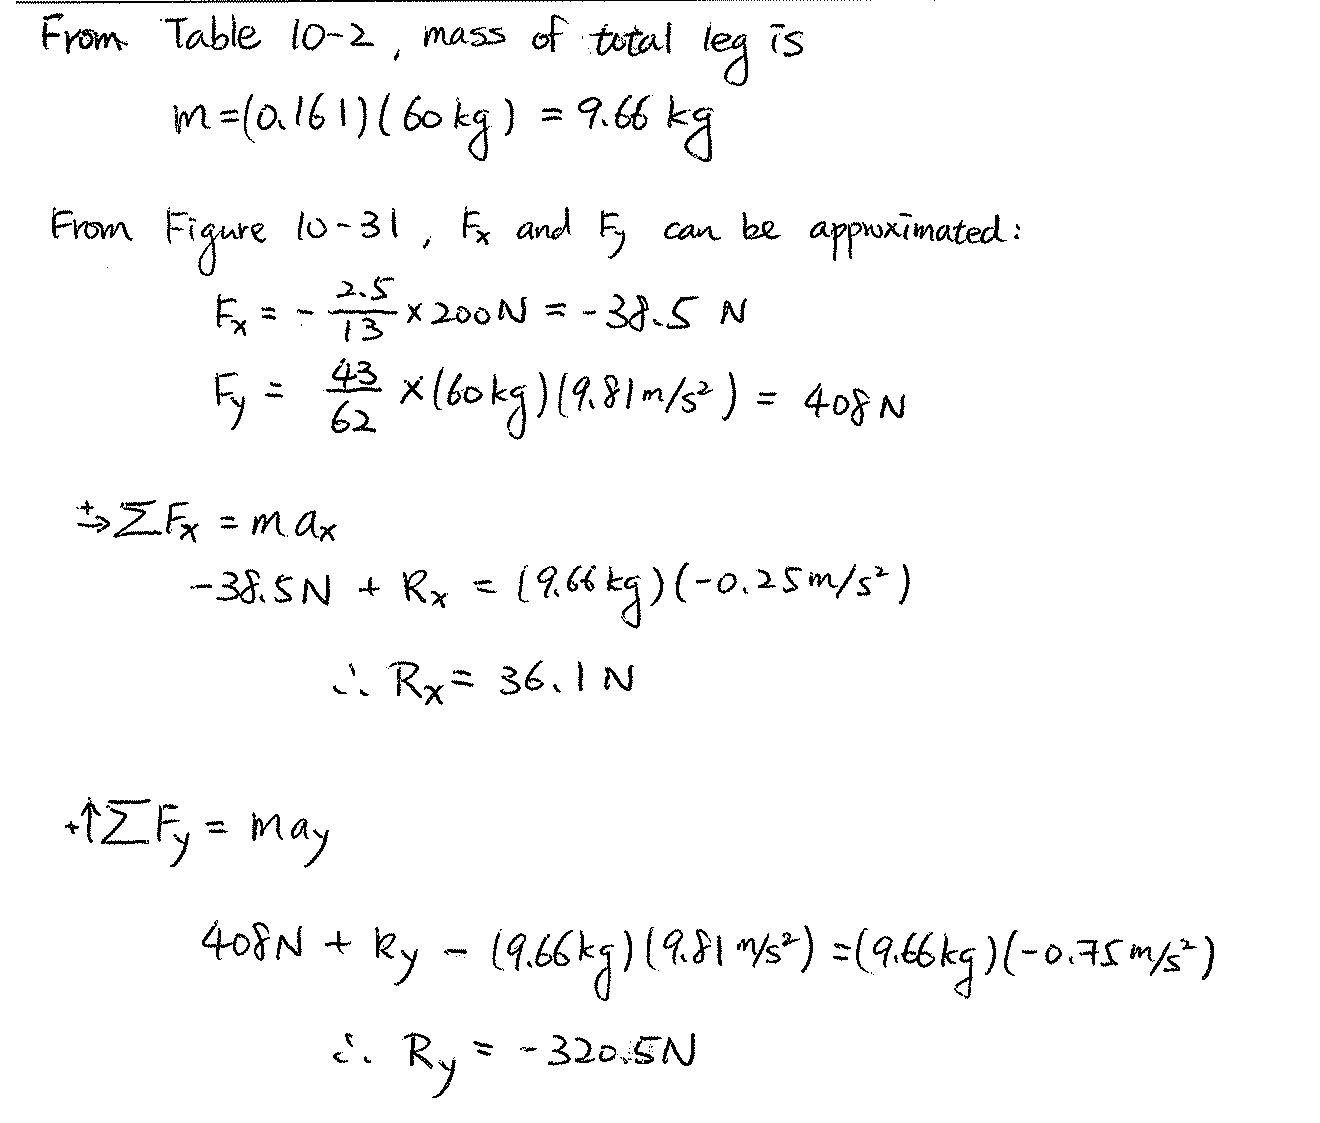 From Table 10-2, mass of total leg is
m=(0.161)(60 kg) = 9.66 kg
From Figure 10-31, Fx and Fy can be approximated:
Fx = - 2.5/13 × 200N = -38.5 N
Fy = 43/62 × (60 kg)(9.81 m/s²) = 408 N
+→ ΣFx = m ax
-38.5N + Rx = (9.66 kg)(-0.25 m/s²)
∴ Rx = 36.1 N
+↑ΣFy = may
408N + Ry - (9.66kg)(9.81 m/s²) = (9.66kg)(-0.75 m/s²)
∴ Ry = -320.5N